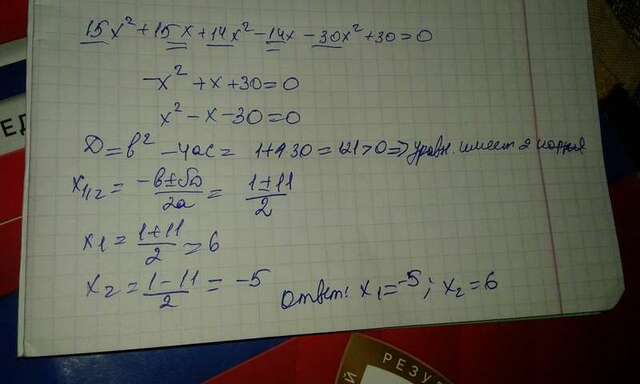 15x² + 15x + 14x² - 14x - 30x² + 30 = 0
-x² + x + 30 = 0
x² - x - 30 = 0
D = b² - 4ac = 1+4·30 = 121 > 0 => уравн. имеет 2 корня
x₁,₂ = (-b±√D)/2a = (1±11)/2
x₁ = (1+11)/2 = 6
x₂ = (1-11)/2 = -5
Ответ: x₁ = -5; x₂ = 6
ЕД
РЕЗУ
Й